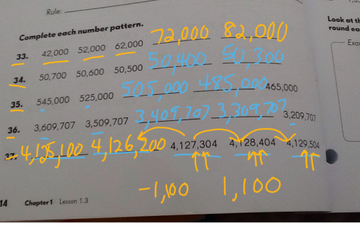 Rule:
Look at t
round ea
Complete each number pattern.
33. 42,000 52,000 62,000 72,000 82,000
34. 50,700 50,600 50,500 50,400 50,300
35. 545,000 525,000 505,000 485,000 465,000
36. 3,609,707 3,509,707 3,409,707 3,309,707 3,209,707
37. 4,125,100 4,126,200 4,127,304 4,128,404 4,129,504
-1,100 1,100
14 Chapter 1 Lesson 1.3